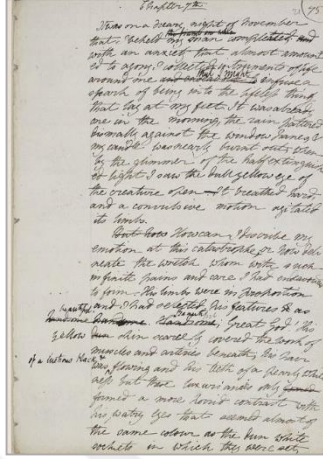 75
Chapter 7th
It was on a dreary night of November
that I beheld my man completed and
with an anxiety that almost amount
ed to agony, I collected instruments of life
around me that I might infuse a
spark of being into the lifeless thing
that lay at my feet. It was already
one in the morning, the rain pattered
dismally against the window panes &
my candle was nearly burnt out, when
by the glimmer of the half extinguish
ed light I saw the dull yellow eye of
the creature open. It breathed hard
and a convulsive motion agitated
its limbs.
But how How can I describe my
emotion at this catastrophe, or how deli
neate the wretch whom with such
infinite pains and care I had endeavoured
to form. His limbs were in proportion
and I had selected his features as
beautiful
handsome Beautiful! Great God! His
yellow skin scarcely covered the work of
muscles and arteries beneath; his hair
of a lustrous black &
was flowing and his teeth of a pearly white
ness but these luxuriances only
formed a more horrid contrast with
his watry eyes that seemed almost of
the same colour as the dun white
sockets in which they were set,